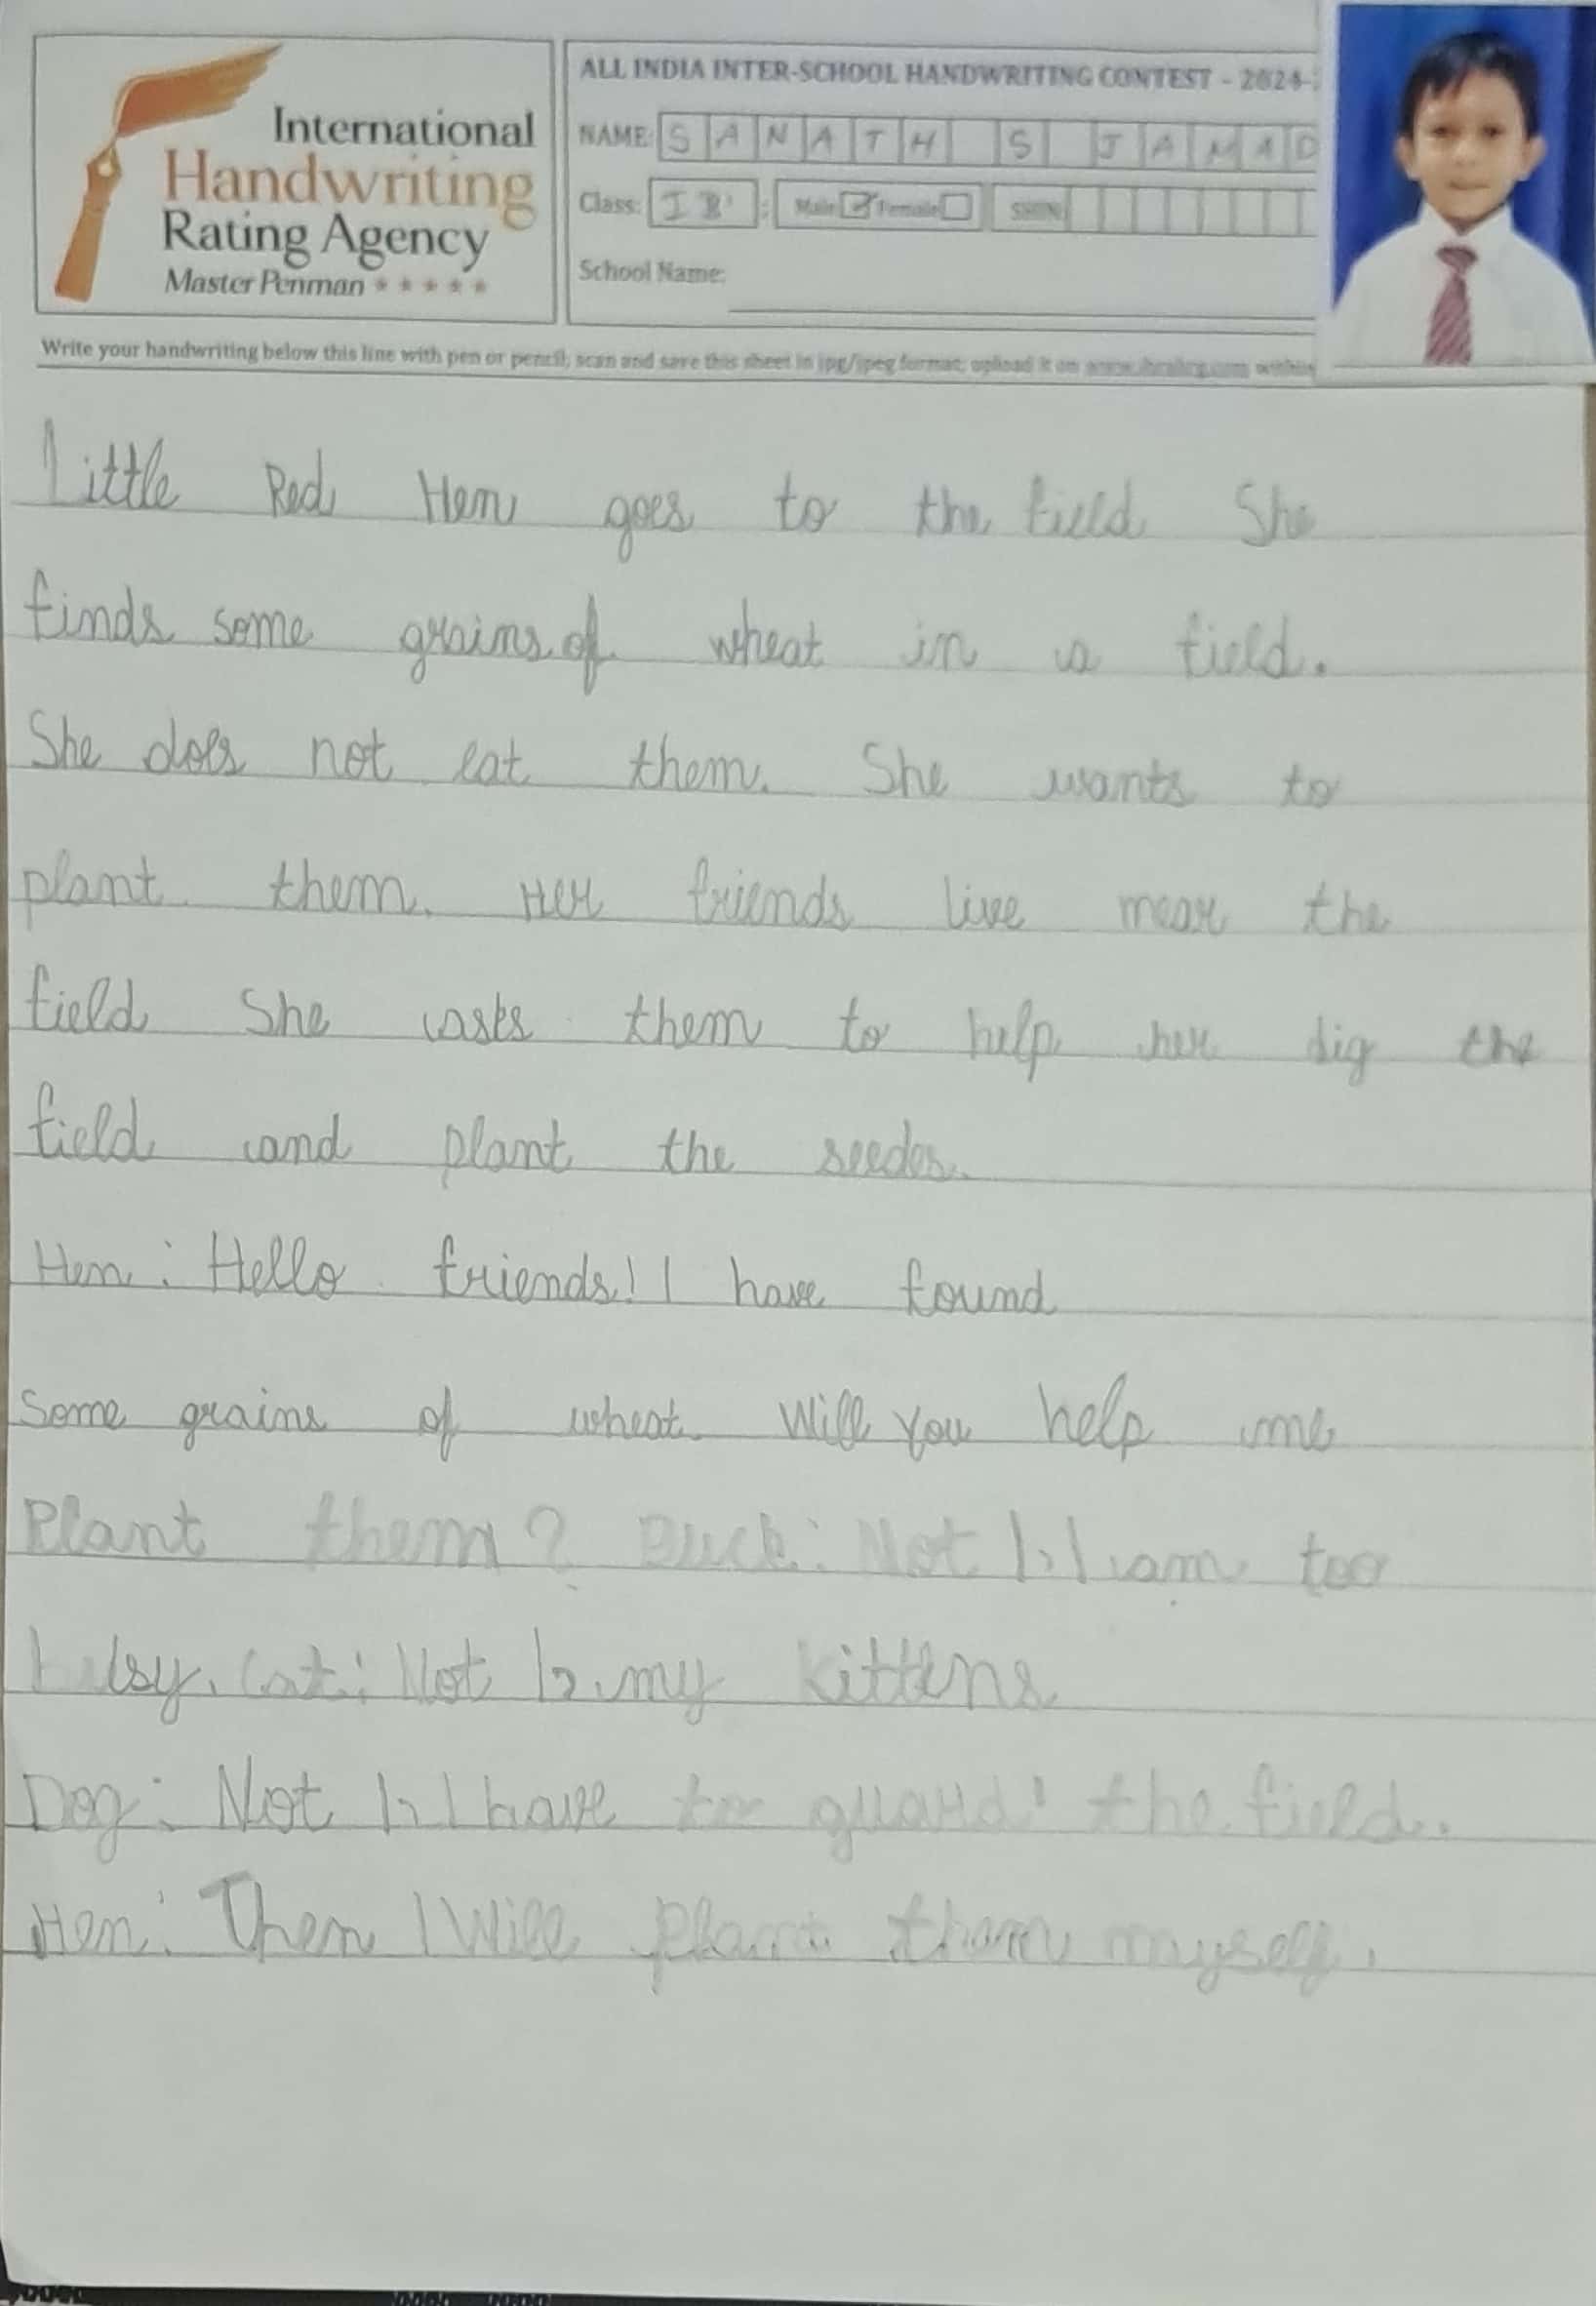 International
Handwriting
Rating Agency
Master Penman
ALL INDIA INTER-SCHOOL HANDWRITING CONTEST - 2024-
NAME: SANATH S JAMAD
Class: I B Male Female SHRN
School Name:
Write your handwriting below this line with pen or pencil; scan and save this sheet in jpg/jpeg format; upload it on within
Little Red Hen goes to the field She
finds some grains of wheat in a field.
She does not eat them. She wants to
plant them. Her friends live near the
field She asks them to help her dig the
field and plant the seedes.
Hen : Hello friends! I have found
Some grains of wheat. Will You help me
Plant them? Duck: Not I. I am too
Cat: Not I. my kittens
Dog: Not I. I have to guard the field.
Hen: Then I Will plant them myself.